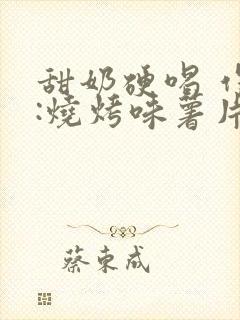 甜奶硬唱
:燒烤味薯片
蔡東成